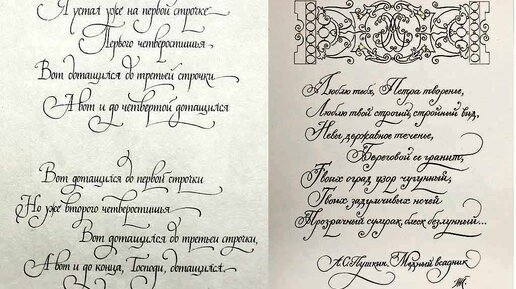 Я устал уже на первой строчке
Первого четверостишья.
Вот дотащился до третьей строчки
А вот и до четвёртой дотащился
Вот дотащился до первой строчки
Но уже второго четверостишья
Вот дотащился до третьей строчки,
А вот и до конца, Господи, дотащился.
Люблю тебя, Петра творенье,
Люблю твой строгий, стройный вид,
Невы державное теченье,
Береговой ее гранит,
Твоих оград узор чугунный,
Твоих задумчивых ночей
Прозрачный сумрак, блеск безлунный...
А.С.Пушкин. Медный всадник